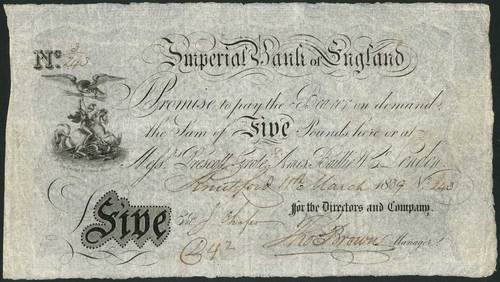 Nº 3/243
Imperial Bank of England
I Promise to pay the Bearer on demand
the Sum of Five Pounds here or at
Messrs Prescott, Grote & Co. London
Knutsford 11th March 1839 Nº 243
for the Directors and Company.
Five
Thos Brown Manager